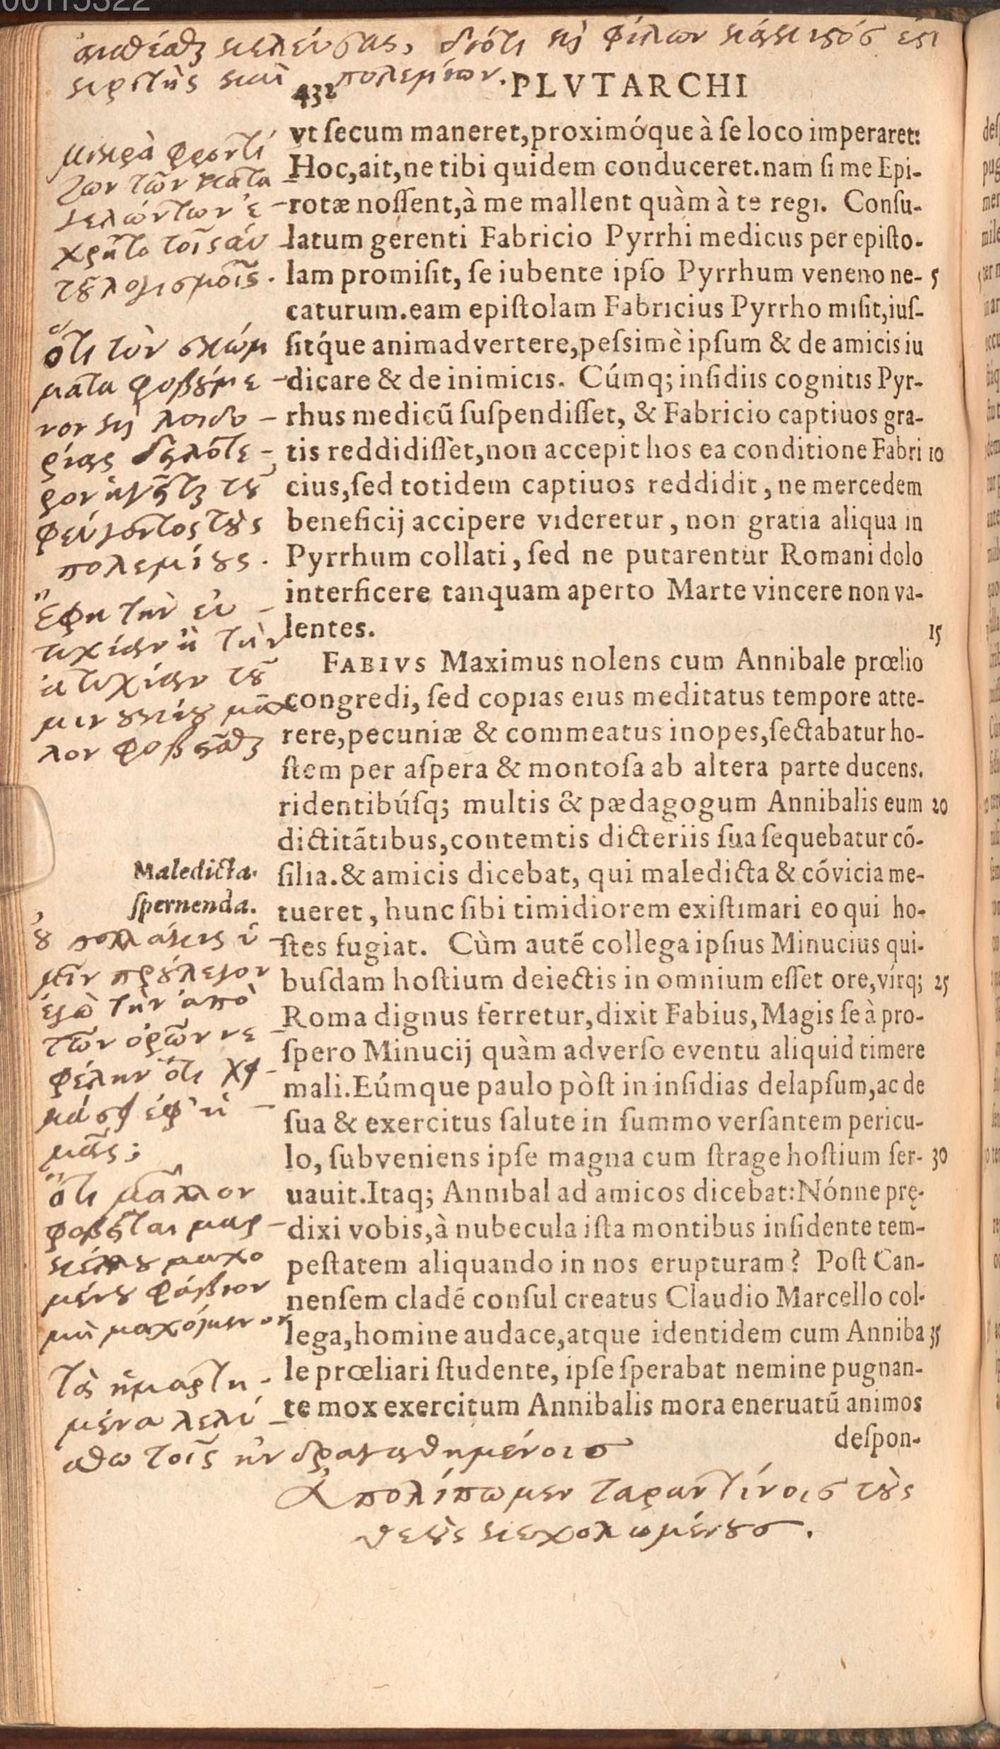 00115322
κριτὴς καὶ πολεμίων.
432 PLVTARCHI
vt secum maneret, proximóque à se loco imperaret:
Hoc, ait, ne tibi quidem conduceret. nam si me Epi-
rotæ nossent, à me mallent quàm à te regi. Consu-
latum gerenti Fabricio Pyrrhi medicus per episto-
lam promisit, se iubente ipso Pyrrhum veneno ne- 5
caturum. eam epistolam Fabricius Pyrrho misit, ius-
sitq́ue animadvertere, pessimè ipsum & de amicis iu
dicare & de inimicis. Cúmq; insidiis cognitis Pyr-
rhus medicũ suspendisset, & Fabricio captiuos gra-
tis reddidisset, non accepit hos ea conditione Fabri 10
cius, sed totidem captiuos reddidit, ne mercedem
beneficij accipere videretur, non gratia aliqua in
Pyrrhum collati, sed ne putarentur Romani dolo
interficere tanquam aperto Marte vincere non va-
lentes. 15
FABIVS Maximus nolens cum Annibale prœlio
congredi, sed copias eius meditatus tempore atte-
rere, pecuniæ & commeatus inopes, sectabatur ho-
stem per aspera & montosa ab altera parte ducens.
ridentibúsq; multis & pædagogum Annibalis eum 20
dictitãtibus, contemtis dicteriis sua sequebatur cõ-
silia. & amicis dicebat, qui maledicta & cõvicia me-
tueret, hunc sibi timidiorem existimari eo qui ho-
stes fugiat. Cùm autẽ collega ipsius Minucius qui-
busdam hostium deiectis in omnium esset ore, vírq; 25
Roma dignus ferretur, dixit Fabius, Magis se à pro-
spero Minucij quàm adverso eventu aliquid timere
mali. Eúmque paulo pòst in insidias delapsum, ac de
sua & exercitus salute in summo versantem pericu-
lo, subveniens ipse magna cum strage hostium ser- 30
uauit. Itaq; Annibal ad amicos dicebat: Nónne prę-
dixi vobis, à nubecula ista montibus insidente tem-
pestatem aliquando in nos erupturam? Post Can-
nensem cladẽ consul creatus Claudio Marcello col-
lega, homine audace, atque identidem cum Anniba 35
le prœliari studente, ipse sperabat nemine pugnan-
te mox exercitum Annibalis mora eneruatũ animos
despon-
μικρὰ φροντί
ζων τῶν κατα
γελώντων ἐ-
χρῆτο τοῖς αὐ
τοῦ λογισμοῖς.
ὅτι τὸν σκώμ
ματα φοβούμε-
νον καὶ λοιδο-
ρίας δειλότε-
ρον ἡγεῖται τοῦ
φεύγοντος τοὺς
πολεμίους.
Ἔφη τὴν εὐ-
τυχίαν ἢ τὴν
ἀτυχίαν τοῦ
μινουκίου μᾶλ
λον φοβεῖσθαι
Maledicta
spernenda.
οὐ πολλάκις ὑ
μῖν προύλεγον
ἐγὼ τὴν ἀπὸ
τῶν ὀρῶν νε-
φέλην ὅτι χει-
μάσει ἐφ' ἡ-
μᾶς;
ὅτι μᾶλλον
φοβεῖται μαρ-
κέλλου μαχο
μένου φάβιον
μὴ μαχόμενον
Ἀπολίπωμεν ταραντίνοις τοὺς
θεοὺς κεχολωμένους.